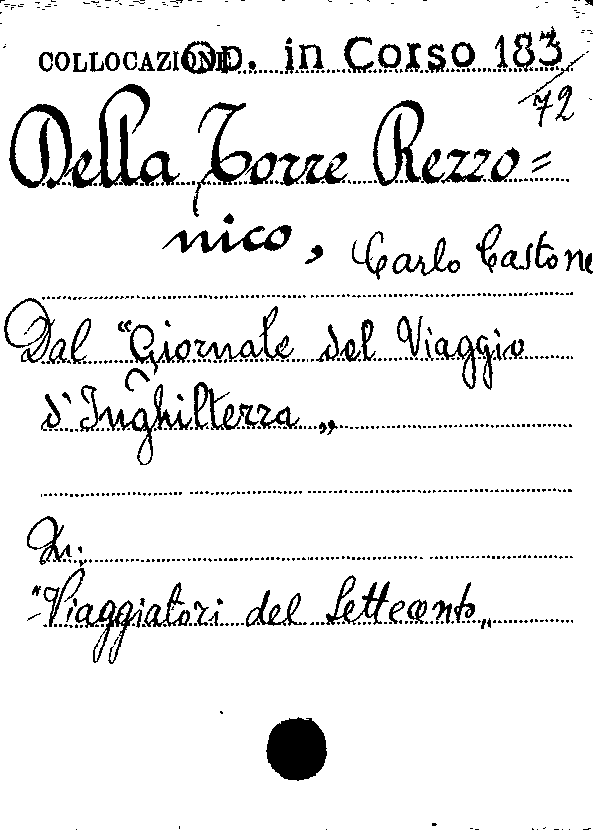 COLLOCAZIONE Op. in Corso 183
72
Della Torre Rezzo=
nico, Carlo Castone
Dal "Giornale del Viaggio
d'Inghilterra„
In:
"Viaggiatori del Settecento„